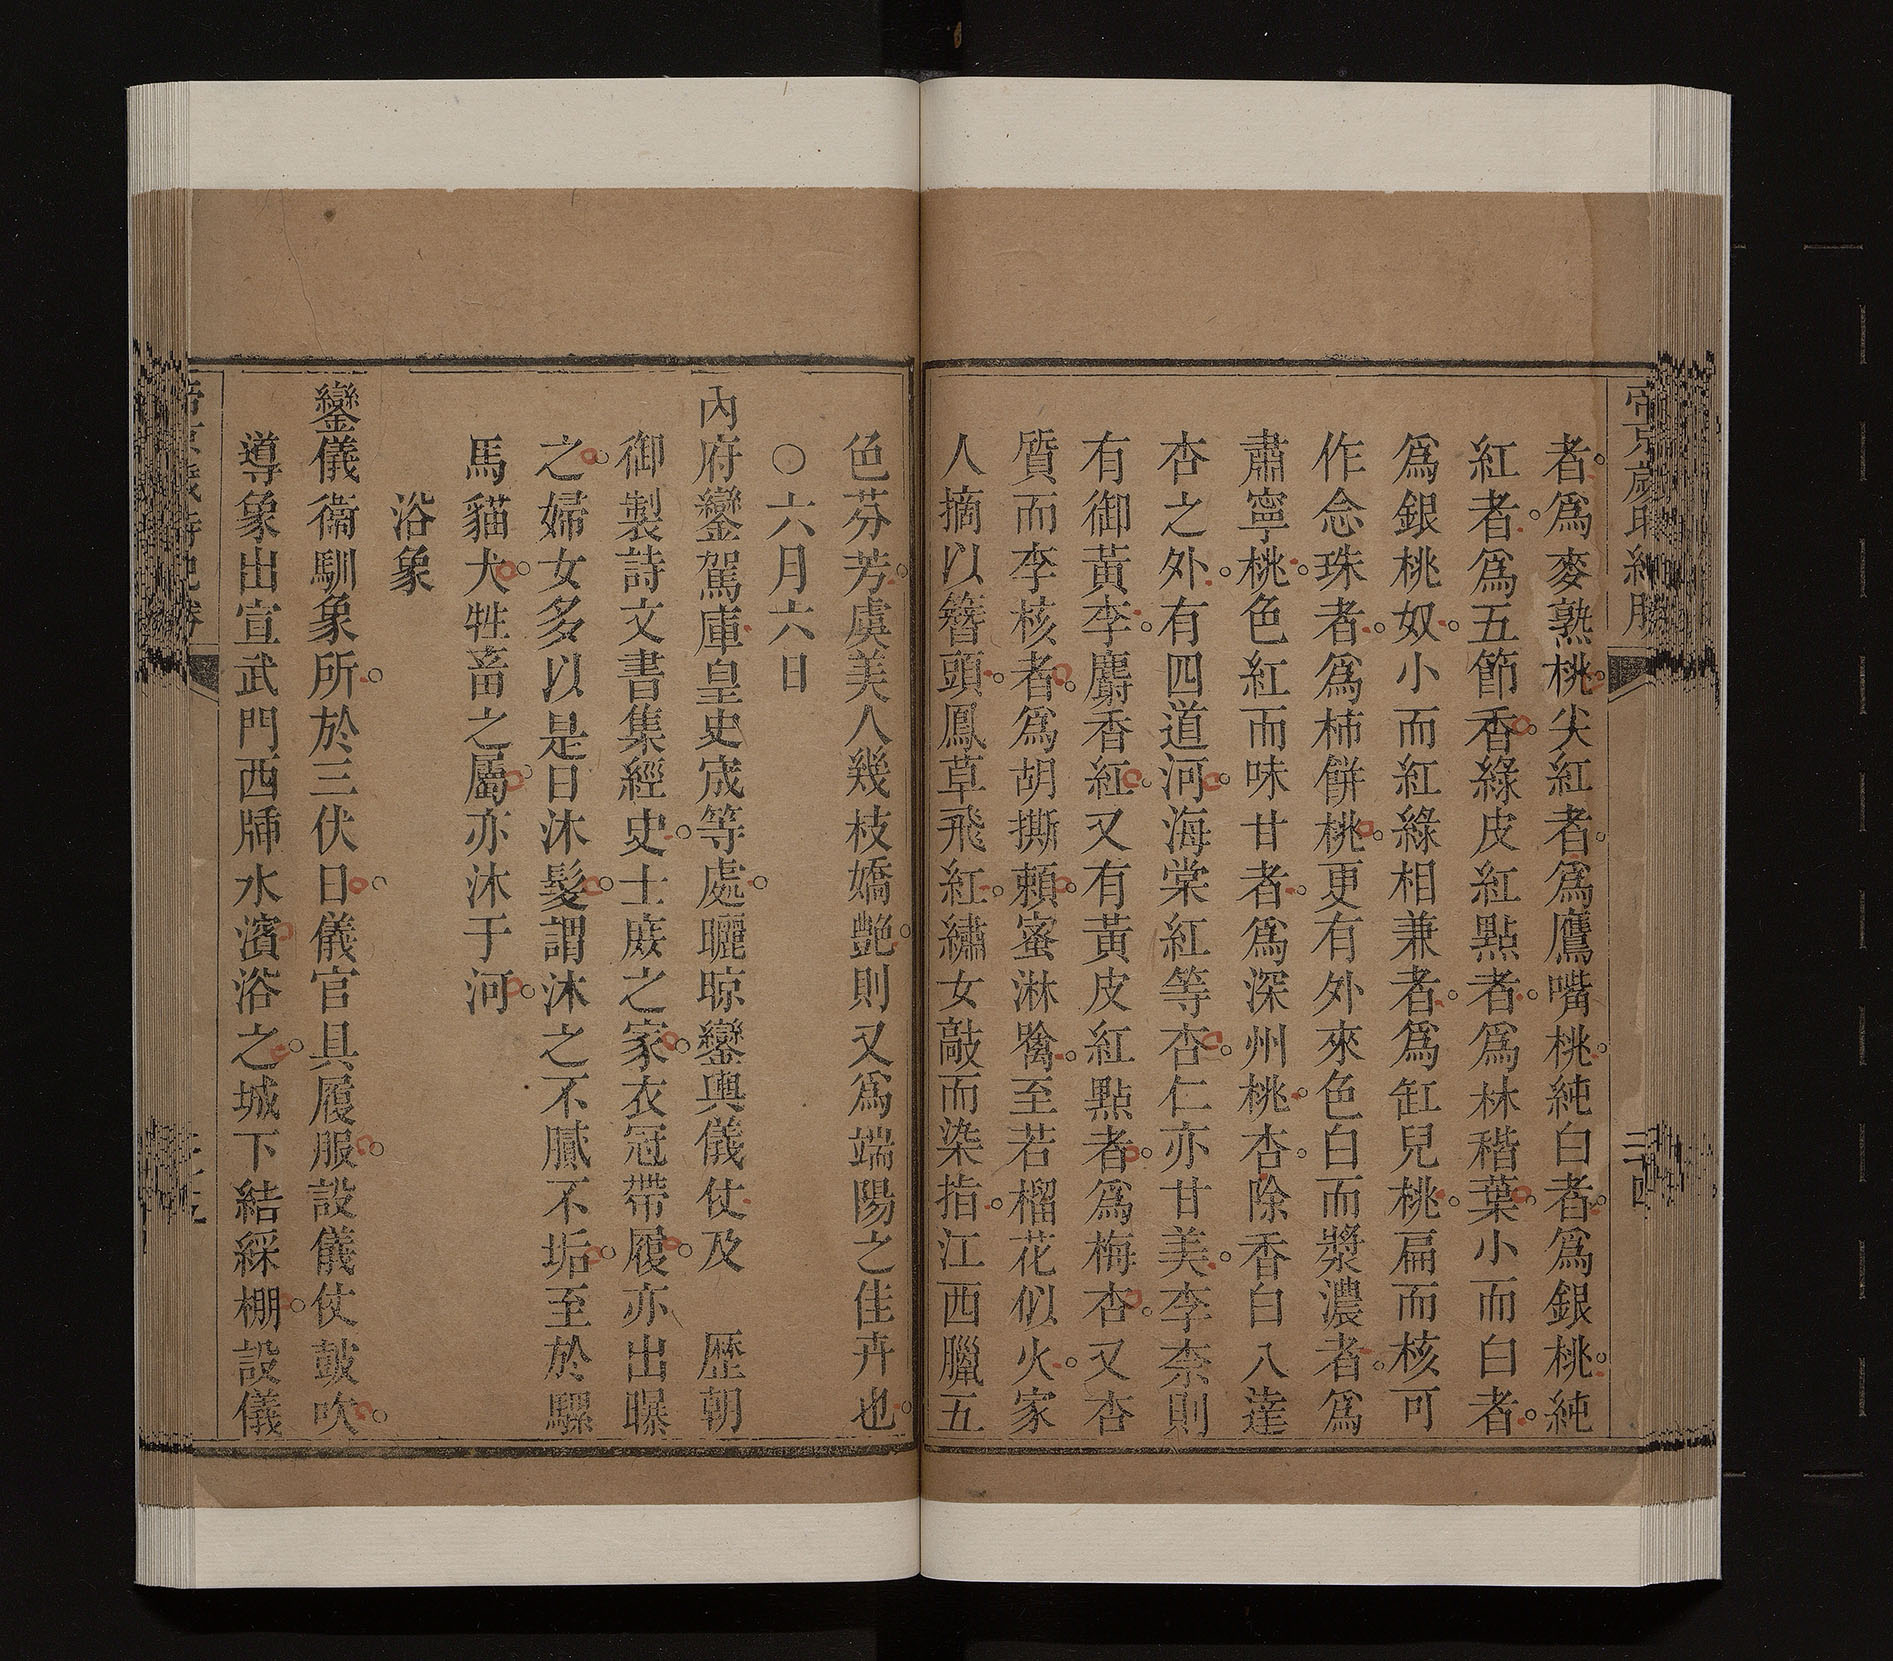 帝京歲時紀勝
二十四
者爲麥熟桃尖紅者爲鷹嘴桃純白者爲銀桃純
紅者爲五節香綠皮紅點者爲林稭葉小而白者
爲銀桃奴小而紅綠相兼者爲缸兒桃扁而核可
作念珠者爲柿餅桃更有外來色白而漿濃者爲
肅寧桃色紅而味甘者爲深州桃杏除香白八達
杏之外有四道河海棠紅等杏仁亦甘美李柰則
有御黃李麝香紅又有黃皮紅點者爲梅杏又杏
質而李核者爲胡撕賴蜜淋檎至若榴花似火家
人摘以簪頭鳳草飛紅繡女敲而染指江西臘五
色芬芳虞美人幾枝嬌艷則又爲端陽之佳卉也
○六月六日
內府鑾駕庫皇史宬等處曬晾鑾輿儀仗及 歷朝
御製詩文書集經史士庶之家衣冠帶履亦出曝
之婦女多以是日沐髮謂沐之不膩不垢至於騾
馬貓犬牲畜之屬亦沐于河
浴象
鑾儀衞馴象所於三伏日儀官具履服設儀仗鼓吹
導象出宣武門西牐水濱浴之城下結綵棚設儀
帝京歲時紀勝